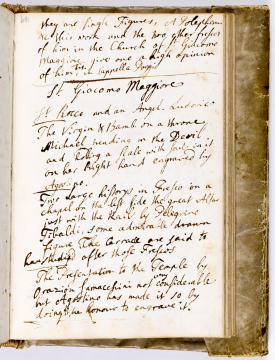 they are single Figures, A Polepheme
in this work and the two other frescos
of him in the Church of S. Giacomo
Maggiore give one a high opinion
of him, in Cappella
St Giacomo Maggiore
St Rocco and an Angel. Ludovico
The Virgin & Bamb. on a throne
Michael treading on the Devil,
and holding a scale with souls in it
on her right hand engraved by
Agostino.
Two Large Historys in Fresco on a
chapel on the left side the great Altar
just with the Rail by Pelegrino
Tibaldi. some admirable drawn
figure. The Carracci are said to
have studied after those Frescos
The Presentation to the Temple by
Orazio Samacchini not considerable
but Agostino has made it so by
doing the honour to engrave it.